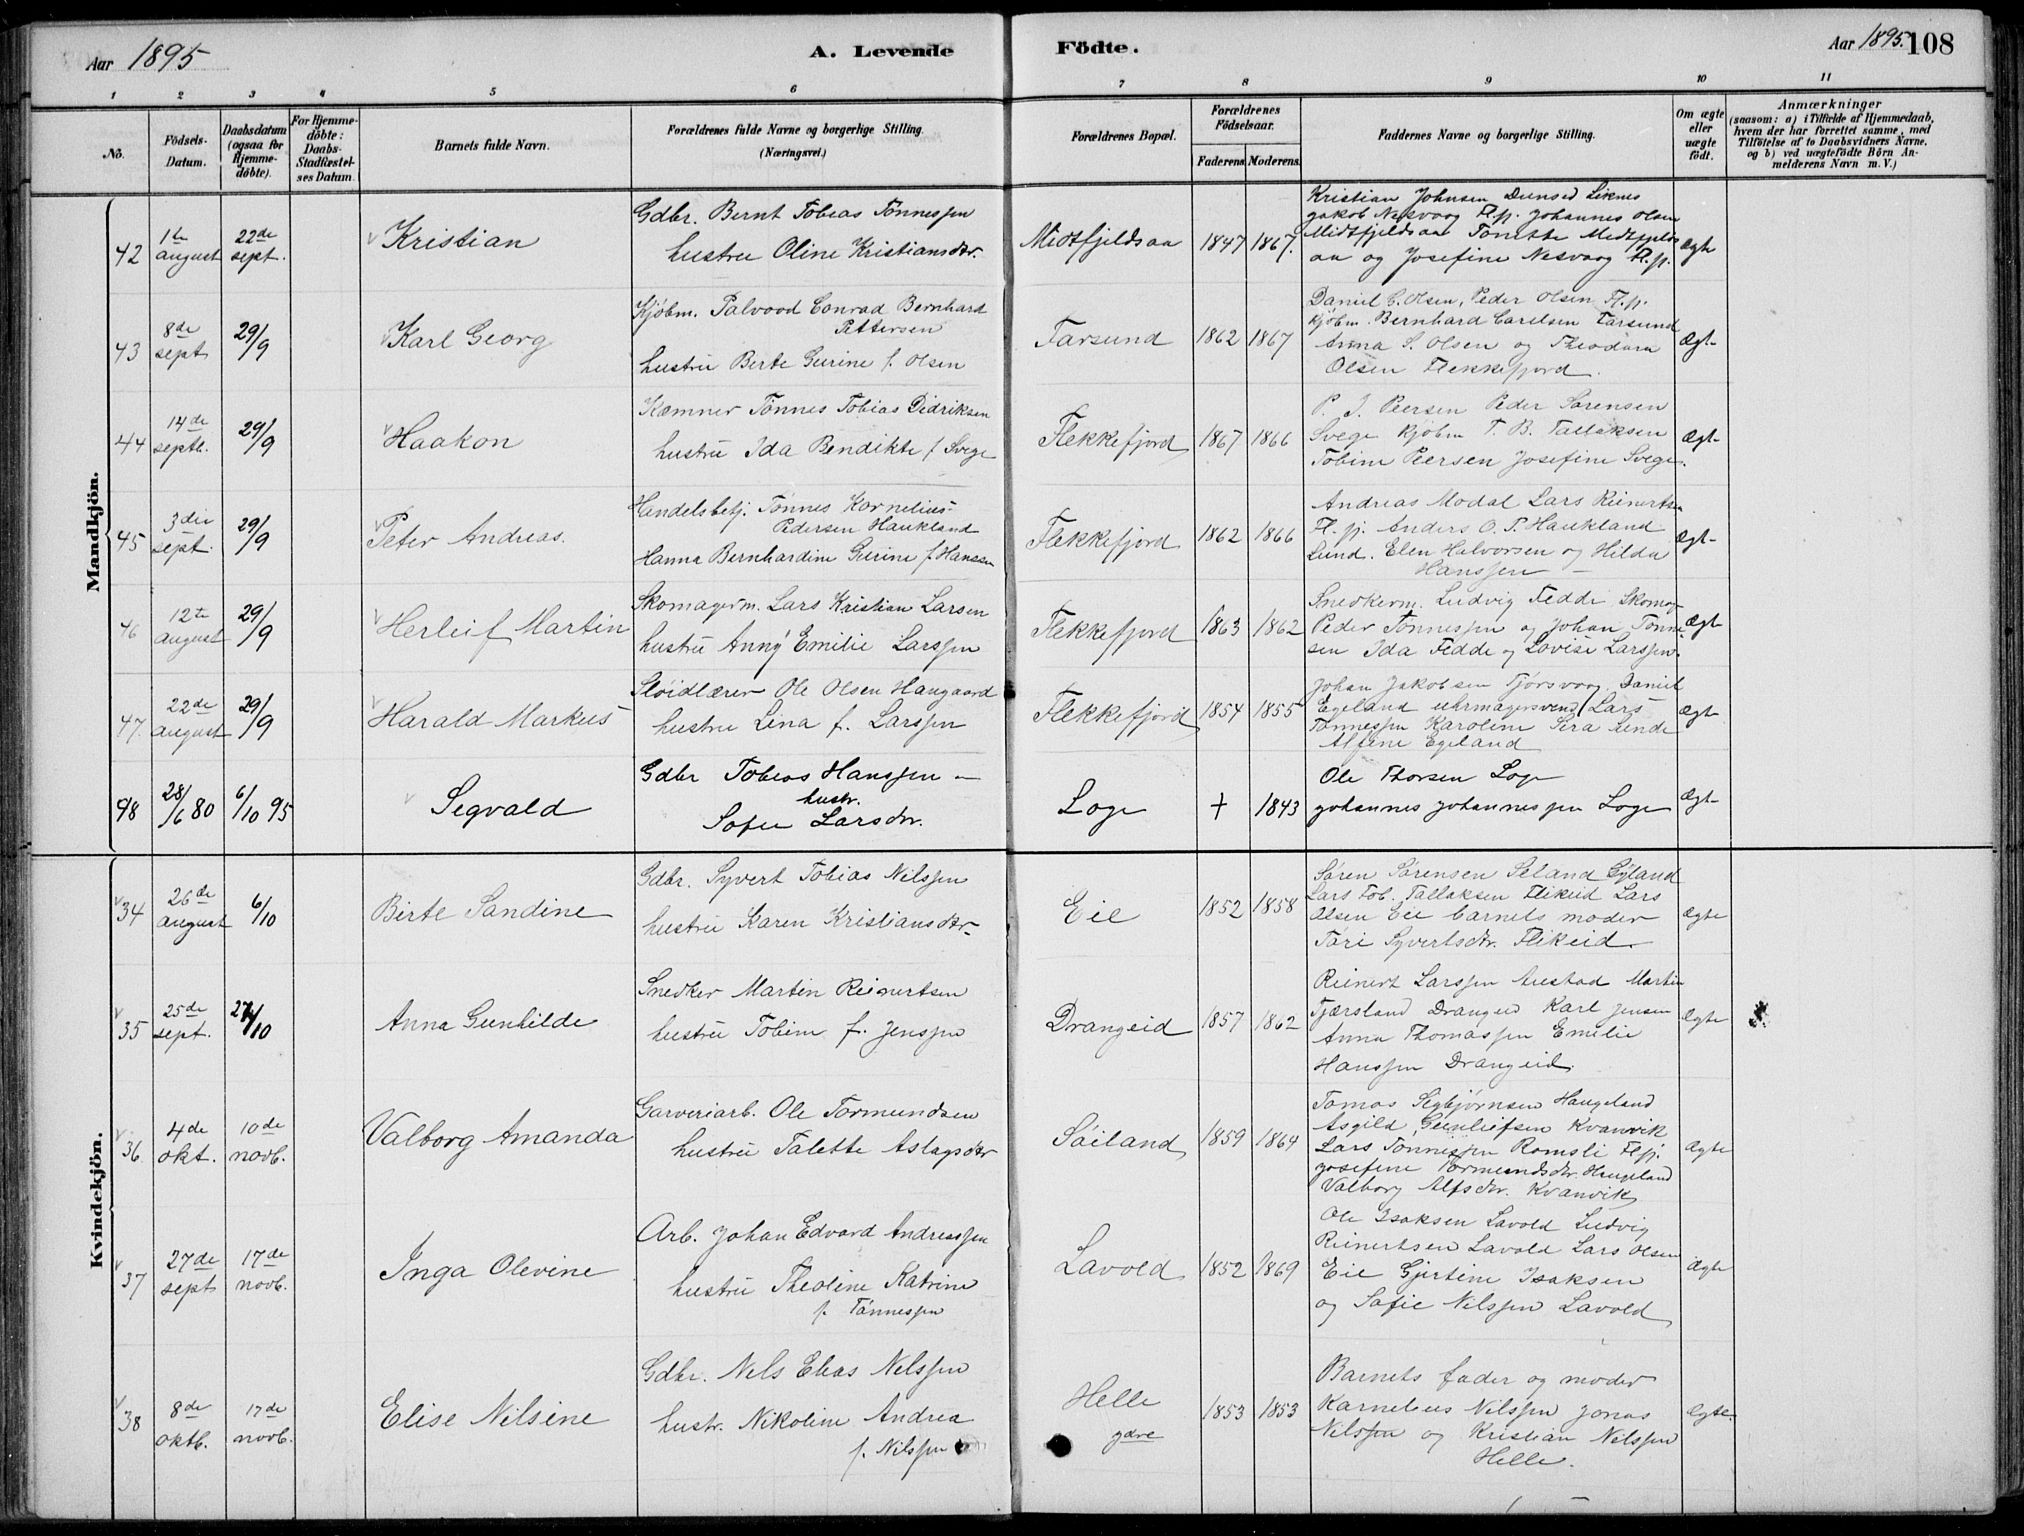 Aar 1895
A. Levende
Födte.
Aar 1895.
108
1 2 3 4 5 6 7 8 9 10 11
No.
Födsels-
Datum.
Daabsdatum
(ogsaa for
Hjemme-
döbte).
For Hjemme-
döbte:
Daabs-
Stadfæstel-
ses Datum.
Barnets fulde Navn.
Forældrenes fulde Navne og borgerlige Stilling.
(Næringsvei.)
Forældrenes Bopæl.
Forældrenes
Födselsaar.
Faderens. Moderens.
Faddernes Navne og borgerlige Stilling.
Om ægte
eller
uægte
födt.
Anmærkninger
(saasom: a) i Tilfælde af Hjemmedaab,
hvem der har forrettet samme, med
Tilföielse af to Daabsvidners Navne,
og b) ved uægtefödte Börn An-
melderens Navn m. V.)
Mandkjön.
42
1te
august
22de
sept.
Kristian
Gdbr. Bernt Tobias Tønnessen
hustru Oline Kristiansdtr.
Midtfjeldsaa
1847 1867.
Kristian Johnsen Dunsed Liknes
Jakob Nesvaag Fl.fj. Johannes Olsen
Midtfjeldsaa Tonette Midtfjelds
aa og Josefine Nesvaag Fl.fj.
Ægte
43
8de
sept
29/9
Karl Georg
Kjøbm. Palvood Conrad Bernhard
Pettersen
hustru Berte Gurine f. Olsen
Farsund
1862 1867
Daniel C. Olsen, Peder Olsen Fl.fj.
Kjøbm. Bernhard Carelsen Farsund
Anna S. Olsen og Theodora
Olsen Flekkefjord.
Ægt-
44
14de
septb.
29/9
Haakon
Kæmner Tønnes Tobias Didriksen
hustru Ida Bendikte f Svege
Flekkefjord
1867 1866
P. J. Peersen Peder Sørensen
Svege Kjøbm T. B. Tallaksen
Tobine Peersen Josefine Svege.
Ægt-
45
3die
sept.
29/9
Peter Andreas.
Handelsbetj. Tønnes Kornelius
Pedersen Haukland
Hanna Bernhardine Gurine f. Hanssen
Flekkefjord
1862 1866
Andreas Modal Lars Reinertsen
Fl.fj. Anders O. P. Haukland
Lund. Elen Halvorsen og Hilda
Hanssen
Ægt-
46
12te
august
29/9
Herleif Martin
Skomagerm. Lars Kristian Larsen
hustru Anny Emilie Larssen
Flekkefjord
1863 1862
Snedkerm. Ludvig Fedde Skomag
Peder Tønnessen og Johan Tønne
sen Ida Fedde og Lovise Larssen.
Ægt
47.
22de
august
29/9
Harald Markus
Sløidlærer Ole Olsen Haugaard
hustru Lina f. Larssen
Flekkefjord
1854 1855
Johan Jakobsen Tjørsvaag Daniel
Egeland uhrmagersvend Lars
Tønnessen Karoline Sira Lunde
Alfine Egeland
Ægt
48
28/6 80
6/10 95
Segvald
Gdbr Tobias Hanssen
hustr.
Sofie Larsdtr.
Loge
+ 1843
Ole Thorsen Loge
Johannes Johannessen Loge
Ægt-
Kvindekjön.
34
26de
august
6/10
Birte Sandine
Gdbr. Syvert Tobias Nilssen
hustru Karen Kristiansdtr
Eie
1852 1858
Søren Sørensen Seland Gyland
Lars Tob. Tallaksen Flikeid Lars
Olsen Eie barnets moder
Tøri Syvertsdtr. Flikeid
Ægte
35
25de
sept.
27/10
Anna Gunhilde
Snedker Martin Reinertsen
hustru Tobine f. Jenssen
Drangeid
1857 1862
Reinert Larssen Austad Martin
Tjærsland Drangeid Karl Jensen
Anna Thomassen Emilie
Hanssen Drangeid.
Ægte
36.
4de
okt.
10de
novb.
Valborg Amanda
Garveriarb. Ole Tormundsen
hustru Talette Aslagsdtr
Søiland
1859 1864
Tomas Sigbjørnsen Haugeland
Asgild Gunleifsen Kvanvik
Lars Tønnessen Romsli Fl.fj.
Josefine Tormundsdtr. Haugeland
Valborg Alfsdtr. Kvanvik
Ægte
37
27de
sept
17de
novb.
Inga Olevine
Arb. Johan Edvard Andreassen
hustru Theoline Katrine
f. Tønnessen
Lavold
1852 1869
Ole Isaksen Lavold Ludvig
Reinertsen Lavold Lars Olsen
Eie Gjertine Isaksen
og Sofie Nilssen Lavold
Ægte
38
8de
oktb.
17de
novb.
Elise Nilsine
Gdbr. Nels Elias Nilssen
hustr. Nikoline Andrea
f. Nilssen
Helle
ydre
1853 1853
Barnets fader og moder
Karnelius Nilssen Jonas
Nilssen og Kristian Nilssen
Helle.
Ægte.